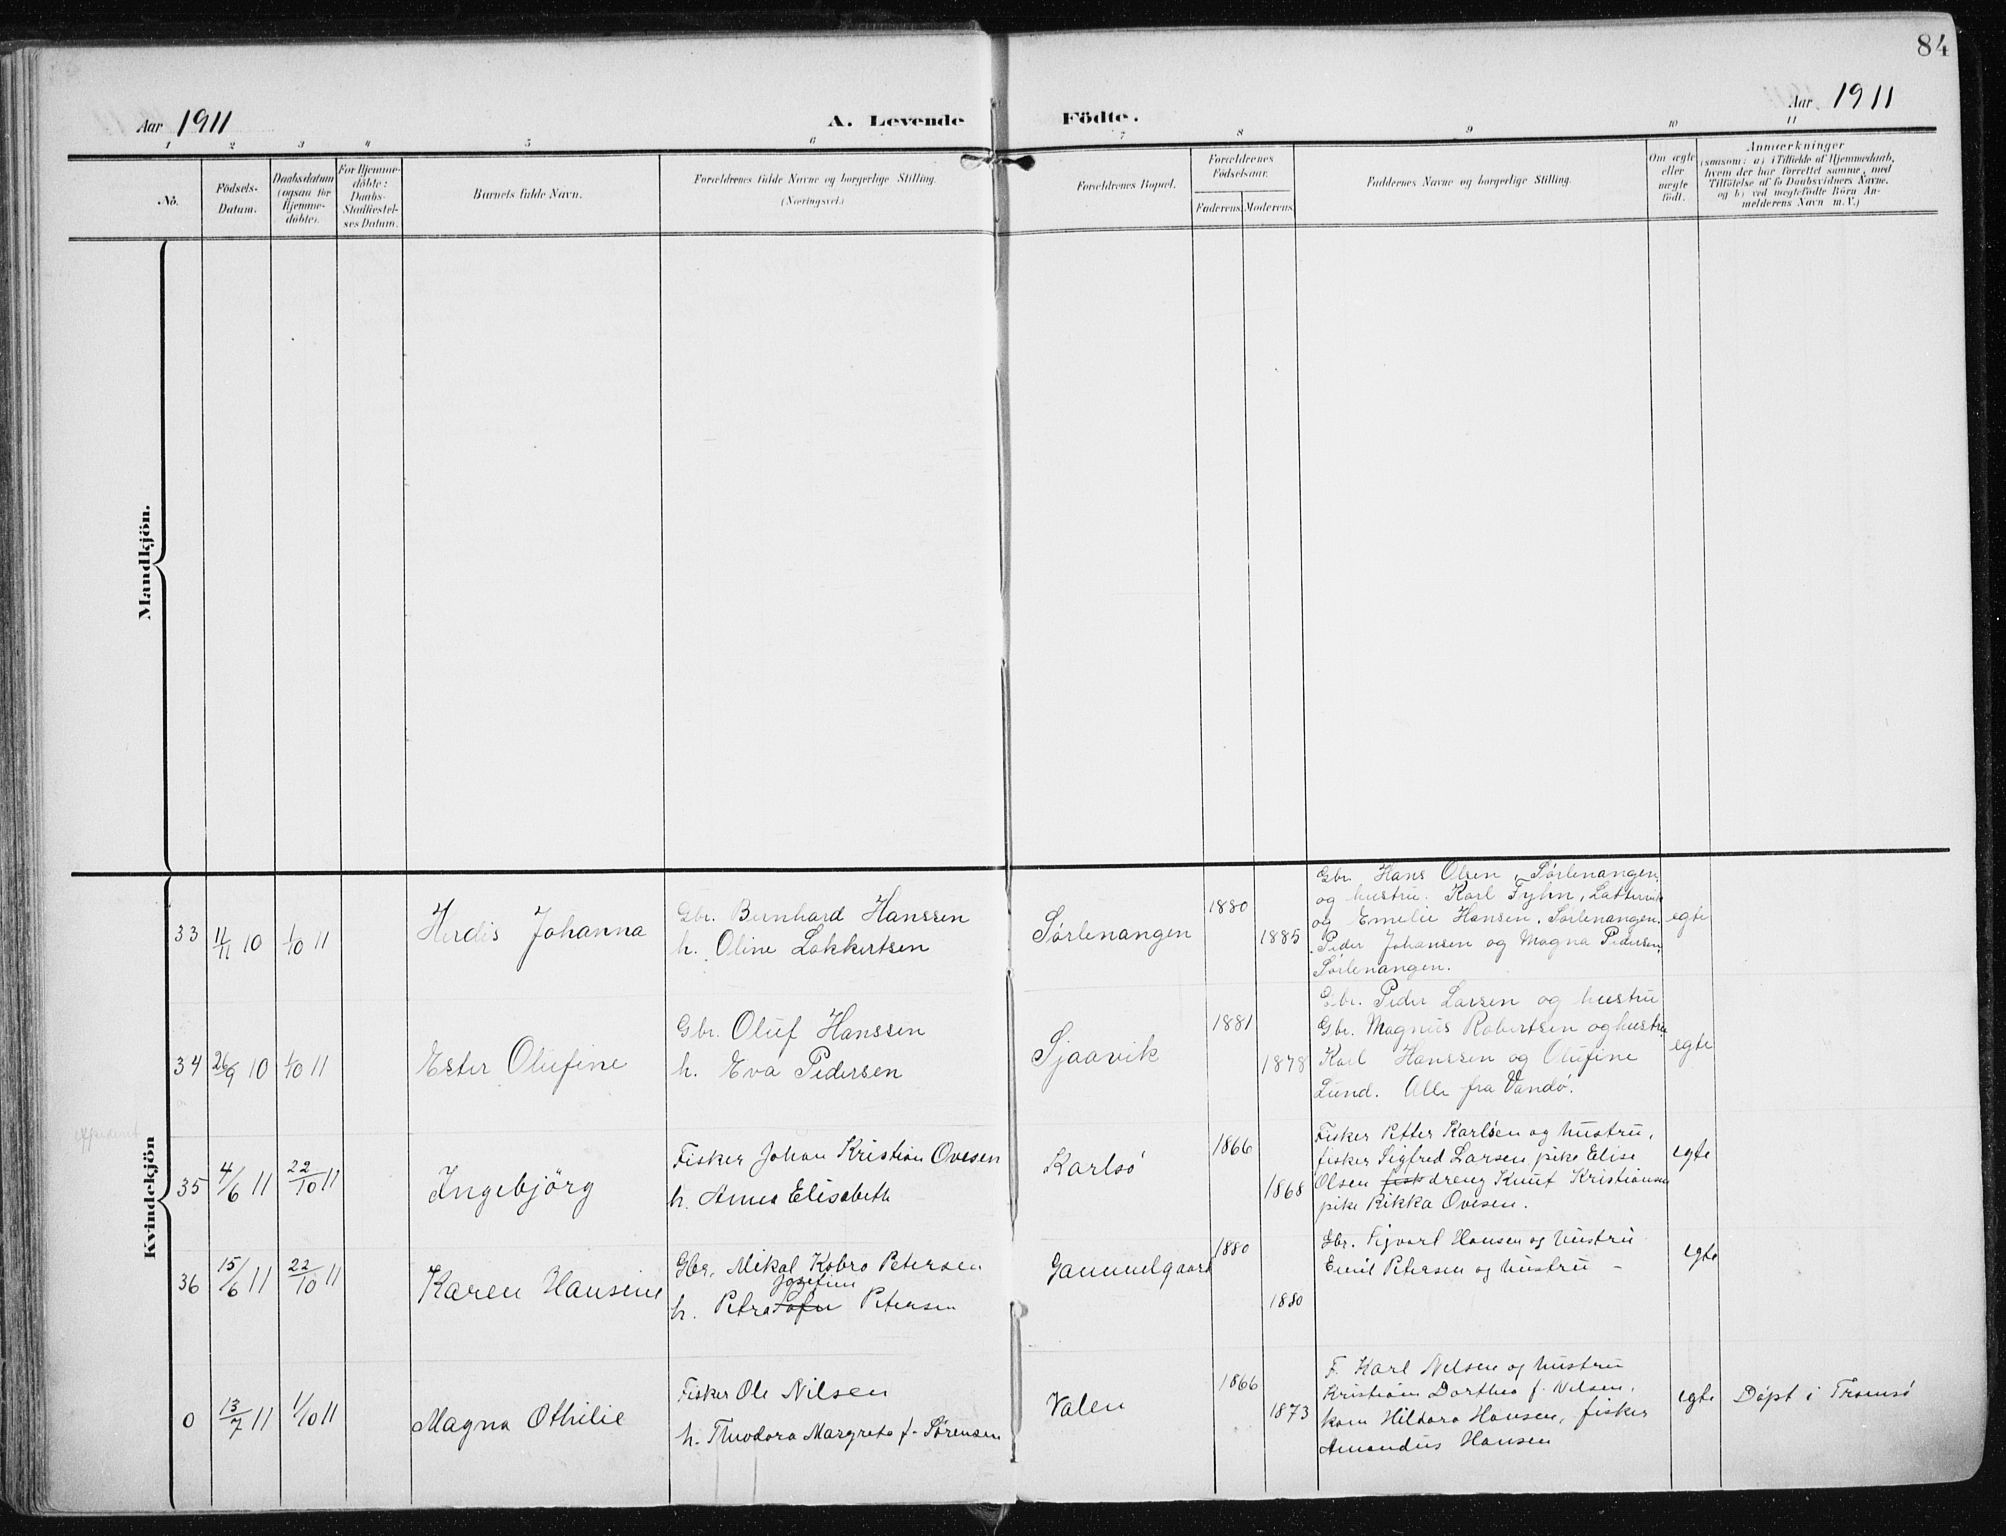 84
Aar 1911
A. Levende Födte.
Aar 1911
1 2 3 4 5 6 7 8 9 10 11
No.
Födsels-
Datum.
Daabsdatum
(ogsaa for
Hjemme-
döbte).
For Hjemme-
döbte:
Daabs-
Stadfæstel-
ses Datum.
Barnets fulde Navn.
Forældrenes fulde Navne og borgerlige Stilling.
(Næringsvei.)
Forældrenes Bopæl.
Forældrenes
Födselsaar.
Faderens Moderens
Faddernes Navne og borgerlige Stilling.
Om ægte
eller
uægte
födt.
Anmærkninger
(saasom: a) i Tilfælde af Hjemmedaab,
hvem der har forrettet samme, med
Tilföielse af to Daabsvidners Navne,
og b) ved uægtefödte Börn An-
melderens Navn m. V.)
Mandkjön.
Kvindekjön
33 11/11 10 1/10 11 Herdis Johanna
Gbr. Bernhard Hanssen
h. Oline Lakkertsen
Sørlenangen
1880
1885
Gbr. Hans Olsen, Sørlenangen.
og hustru. Karl Fyhn, Lattervik
og Emelie Hansen, Sørlenangen.
Peder Johansen og Magna Pedersen,
Sørlenangen.
egte
34 26/9 10 1/10 11 Ester Olufine
Gbr. Oluf Hanssen
h. Eva Pedersen
Sjaavik
1881
1878
Gbr. Peder Larsen og hustru
Gbr. Magnus Robertsen og hustru
Karl Hanssen og Olufine
Lund. Alle fra Vandø.
egte
35 4/6 11 22/10 11 Ingebjörg
Fisker Johan Kristian Ovesen
h. Anna Elisabeth
Karlsö
1866
1868
Fisker Petter Karlsen og hustru,
fisker Sigfred Larsen pike Elise
Olsen fisk dreng Knut Kristiansen
pike Rikka Ovesen.
egte
36 15/6 11 22/10 11 Karen Hansine
Gbr. Mikal Kobro Petersen
Josefine
h. Petra Sofie Petersen
Gammelgaard
1880
1880
Gbr. Sigvart Hansen og hustru
Emil Petersen og hustru –
egte
0 13/7 11 1/10 11 Magna Othilie
Fisker Ole Nilsen
h. Theodora Margreta f. Sørensen
Valen
1866
1873
F. Karl Nilsen og hustru
Kristiam Dorthea f. Nilsen,
kom Hildora Hansen, fisker
Amandus Hansen
egte
Döpt i Tromsö